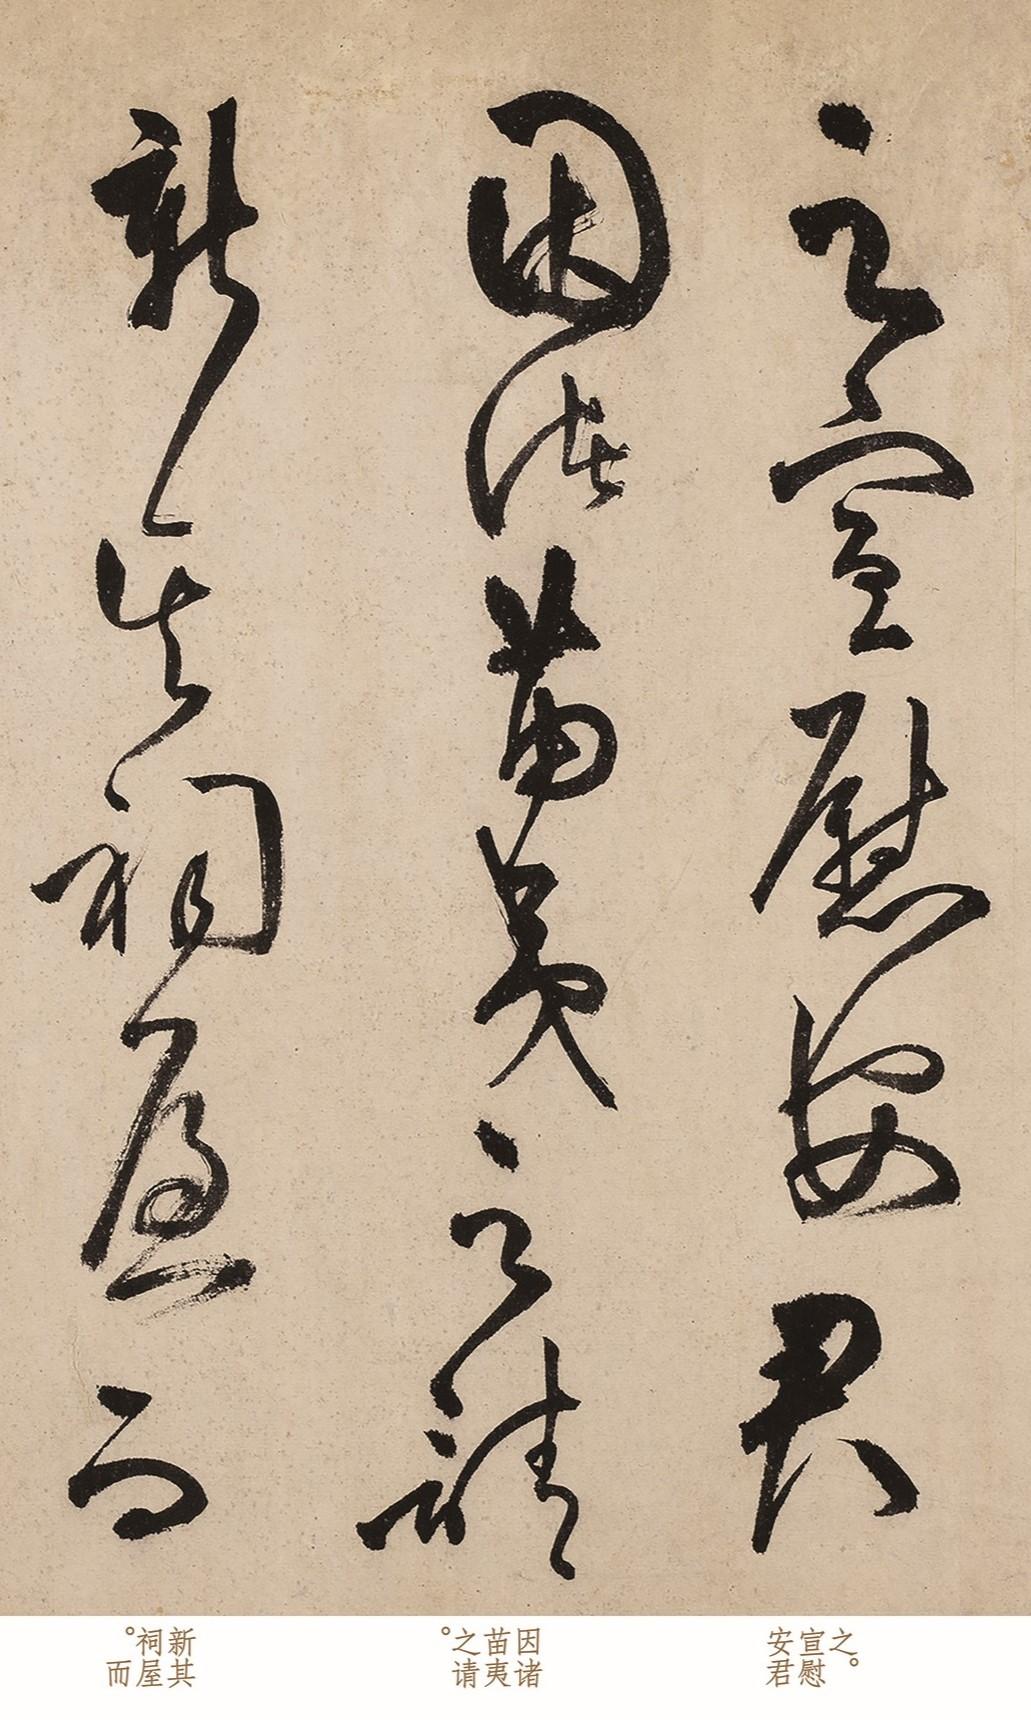 之宣慰安君
因诸苗夷之请
新其祠屋而
之。宣慰安君
因诸苗夷之请。
新其祠屋。而